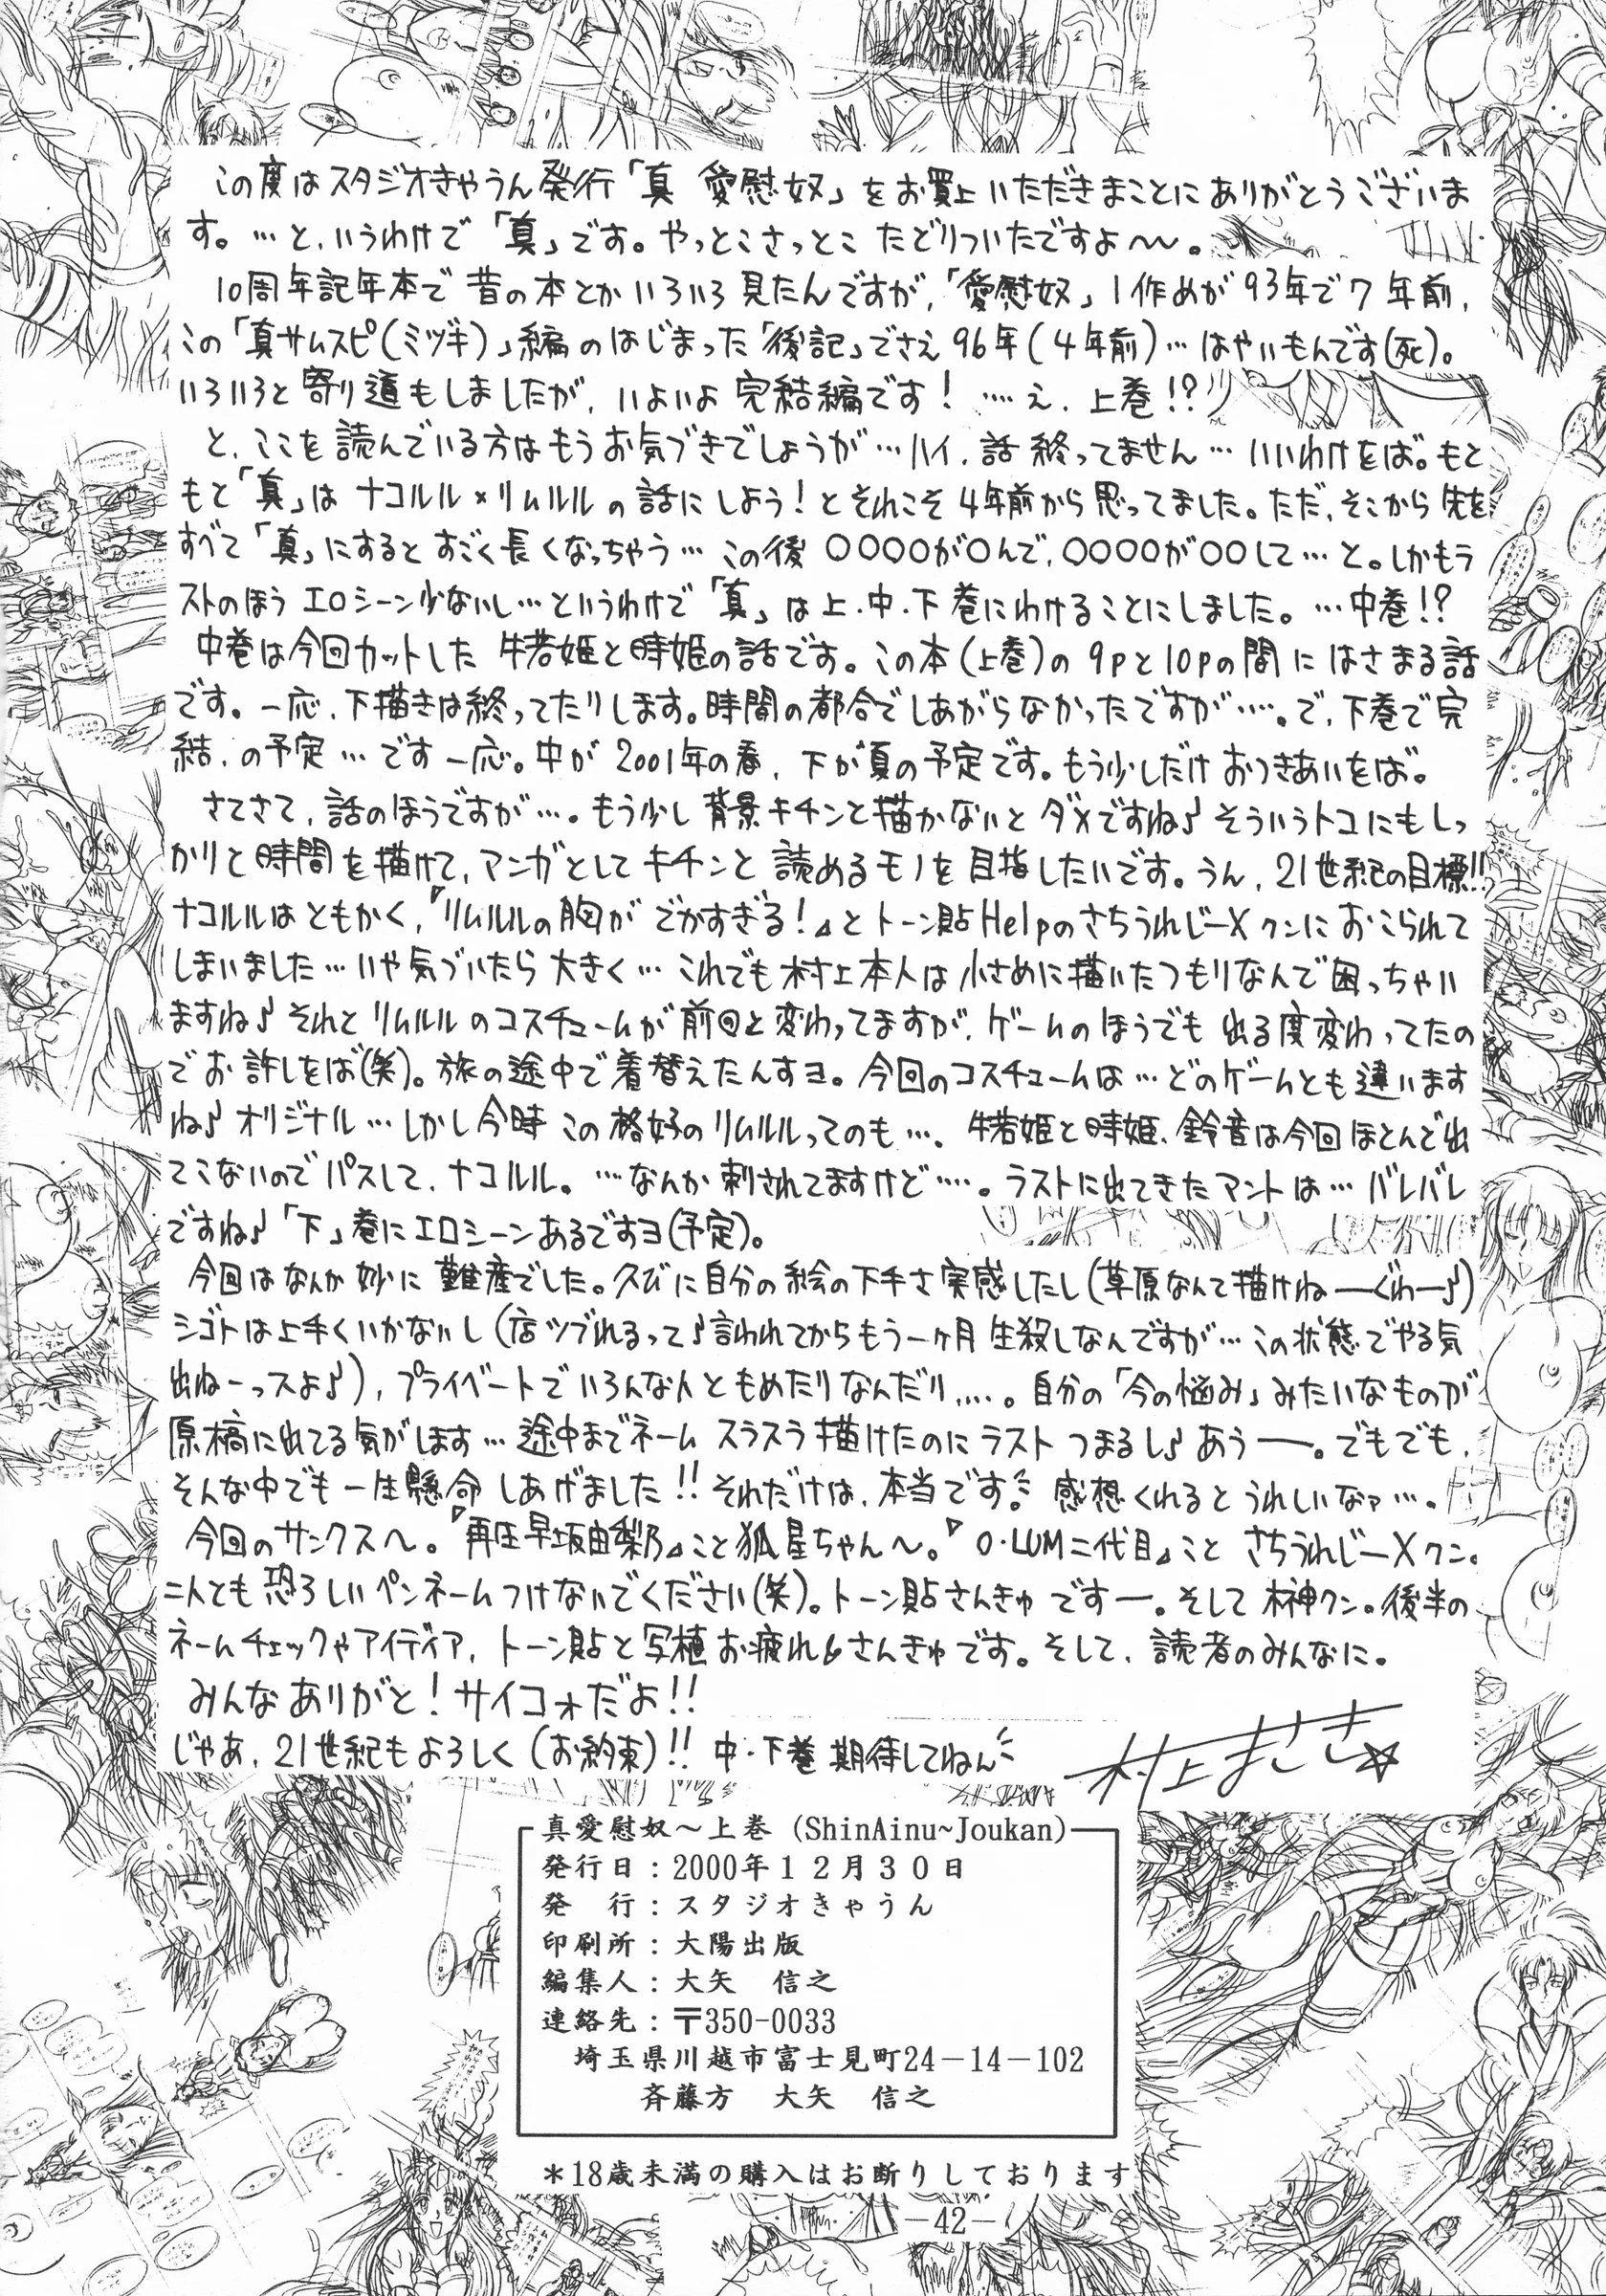 この度はスタジオきゃうん発行「真 愛慰奴」をお買上いただきまことにありがとうございま
す。…と、いうわけで「真」です。やっとこさっとこ たどりついたですよ〜〜。
10周年記年本で昔の本とかいろいろ見たんですが、「愛慰奴」1作めが93年で7年前、
この「真サムスピ(ミヅキ)」編のはじまった「後記」でさえ96年(4年前)…はやいもんです(死)。
いろいろと寄り道もしましたが、いよいよ完結編です! …え、上巻!?
と、ここを読んでいる方はもうお気づきでしょうが…ハイ、話終ってません…いいわけをば。もと
もと「真」はナコルル×リムルルの話にしよう!とそれこそ4年前から思ってました。ただ、そこから先を
すべて「真」にするとすごく長くなっちゃう…この後○○○○が○んで、○○○○が○○して…と。しかもラ
ストのほうエロシーン少ないし…というわけで「真」は上・中・下巻にわけることにしました。…中巻!?
中巻は今回カットした 牛若姫と時姫の話です。この本(上巻)の9pと10pの間にはさまる話
です。一応、下描きは終ってたりします。時間の都合でしあがらなかったですが…。で、下巻で完
結、の予定…です一応。中が2001年の春、下が夏の予定です。もう少しだけおつきあいをば。
さてさて、話のほうですが…。もう少し背景キチンと描かないとダメですね♪そういうトコにもしっ
かりと時間を描けて、マンガとしてキチンと読めるモノを目指したいです。うん、21世紀の目標!!
ナコルルはともかく、『リムルルの胸がでかすぎる!』とトーン貼HelpのさちうれじーXクンにおこられて
しまいました…いや気づいたら大きく…これでも村上本人は小さめに描いたつもりなんで困っちゃい
ますね♪それとリムルルのコスチュームが前回と変わってますが、ゲームのほうでも出る度変わってたの
でお許しをば(笑)。旅の途中で着替えたんすヨ。今回のコスチュームは…どのゲームとも違います
ね♪オリジナル…しかし今時この格好のリムルルってのも…。牛若姫と時姫、鈴音は今回ほとんど出
てこないのでパスして、ナコルル。…なんか刺されてますけど…。ラストに出てきたマントは…バレバレ
ですね♪「下」巻にエロシーンあるですヨ(予定)。
今回はなんか妙に難産でした。久びに自分の絵の下手さ実感したし(草原なんて描けねーぐわー♪)
シゴトは上手くいかないし(店ツブれるって♪言われてからもう一ヶ月生殺しなんですが…この状態でやる気
出ねーっスよ♪)、プライベートでいろんな人ともめたりなんだり…。自分の「今の悩み」みたいなものが
原稿に出てる気がします…途中までネームスラスラ描けたのにラストつまるし♪あうー。でもでも、
そんな中でも一生懸命しあげました!!それだけは、本当です。感想くれるとうれしいなァ…。
今回のサンクスへ。『再生早坂由梨乃』こと狐星ちゃん〜。『O・LUM二代目』ことさちうれじーXクン。
二人とも恐ろしいペンネームつけないでください(笑)。トーン貼さんきゅですー。そして木神クン。後半の
ネームチェックやアイディア、トーン貼と写植お疲れ&さんきゅです。そして、読者のみんなに。
みんなありがと!サイコォだよ!!
じゃあ、21世紀もよろしく(お約束)!!中・下巻期待してねん
村上まさき☆
真愛慰奴〜上巻 (ShinAinu~Joukan)
発行日:2000年12月30日
発 行:スタジオきゃうん
印刷所:大陽出版
編集人:大矢 信之
連絡先:〒350-0033
埼玉県川越市富士見町24-14-102
斉藤方 大矢 信之
*18歳未満の購入はお断りしております
-42-